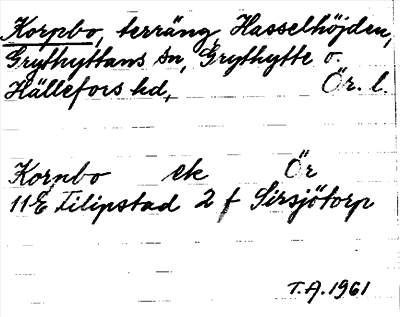 Korpbo, terräng, Hasselhöjden,
Grythyttans sn, Grythytte o.
Hällefors hd, Ör. l.
Kornbo ek Ör
11E Filipstad 2 f Sirsjötorp
T.A. 1961